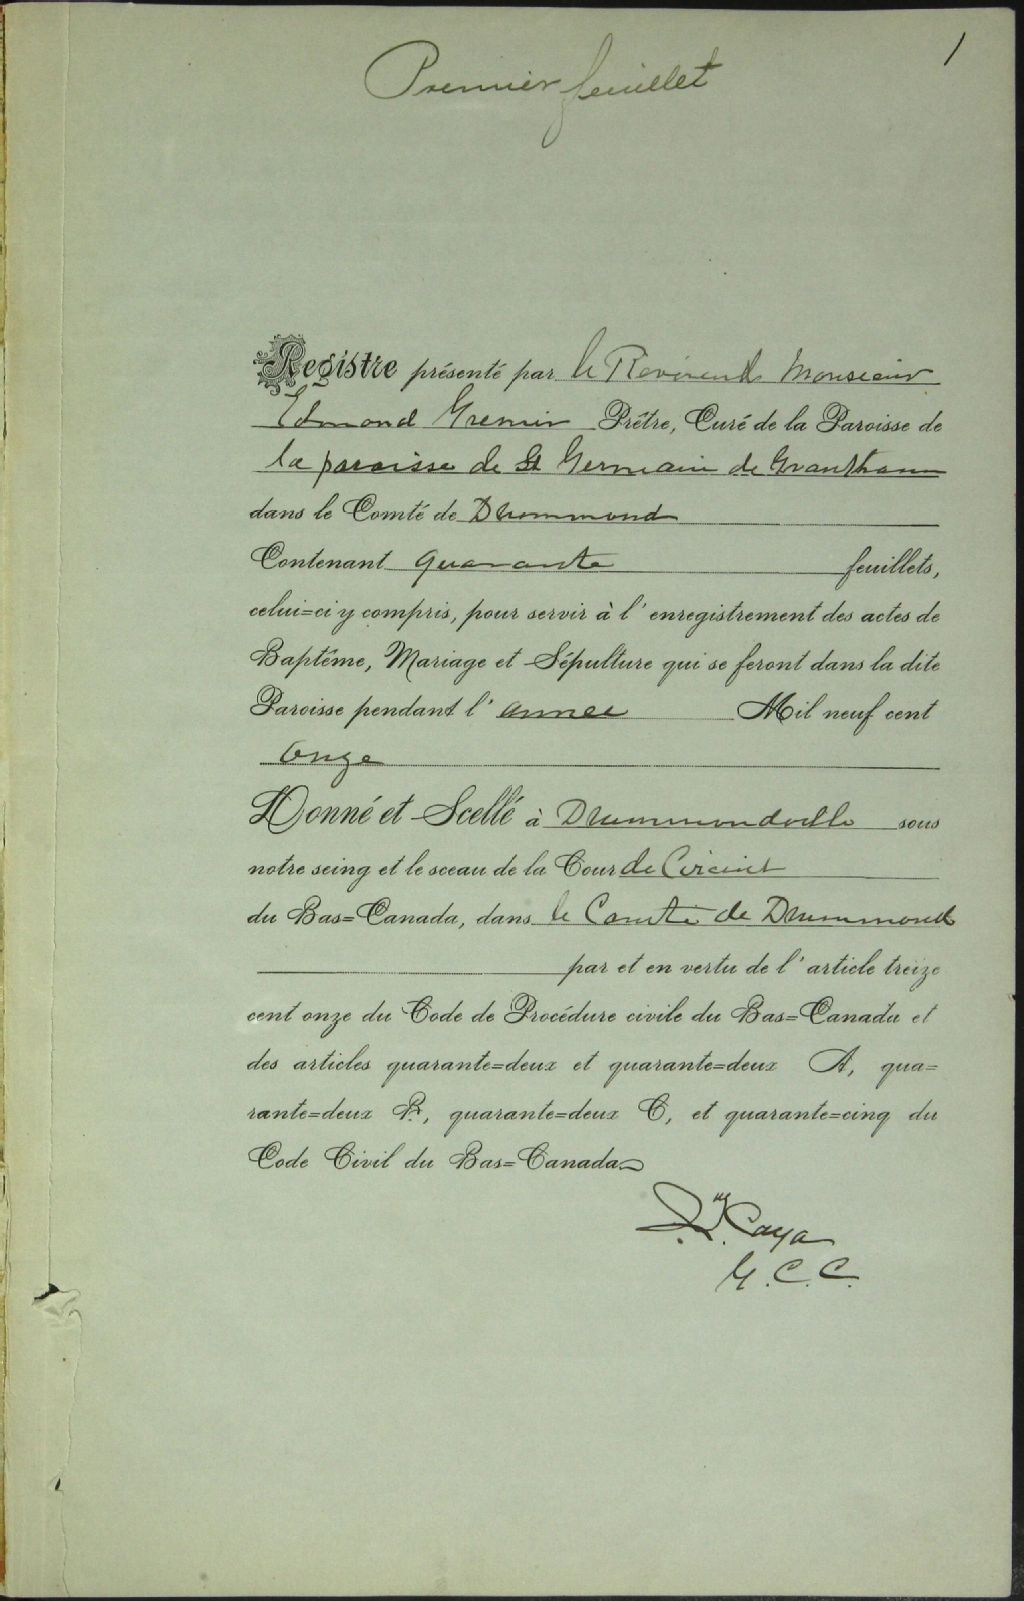 1
Premier feuillet
Registre présenté par le Révérend Monsieur
Edmond Grenier Prêtre, Curé de la Paroisse de
la paroisse de St Germain de Grantham
dans le Comté de Drummond
Contenant quarante feuillets,
celui=ci y compris, pour servir à l'enregistrement des actes de
Baptême, Mariage et Sépulture qui se feront dans la dite
Paroisse pendant l'année Mil neuf cent
onze
Donné et Scellé à Drummondville sous
notre seing et le sceau de la Cour de Circuit
du Bas=Canada, dans le Comté de Drummond
par et en vertu de l'article treize
cent onze du Code de Procédure civile du Bas=Canada et
des articles quarante=deux et quarante=deux A, qua=
rante=deux B, quarante=deux C, et quarante=cinq du
Code Civil du Bas=Canada
Caya
G. C. C.